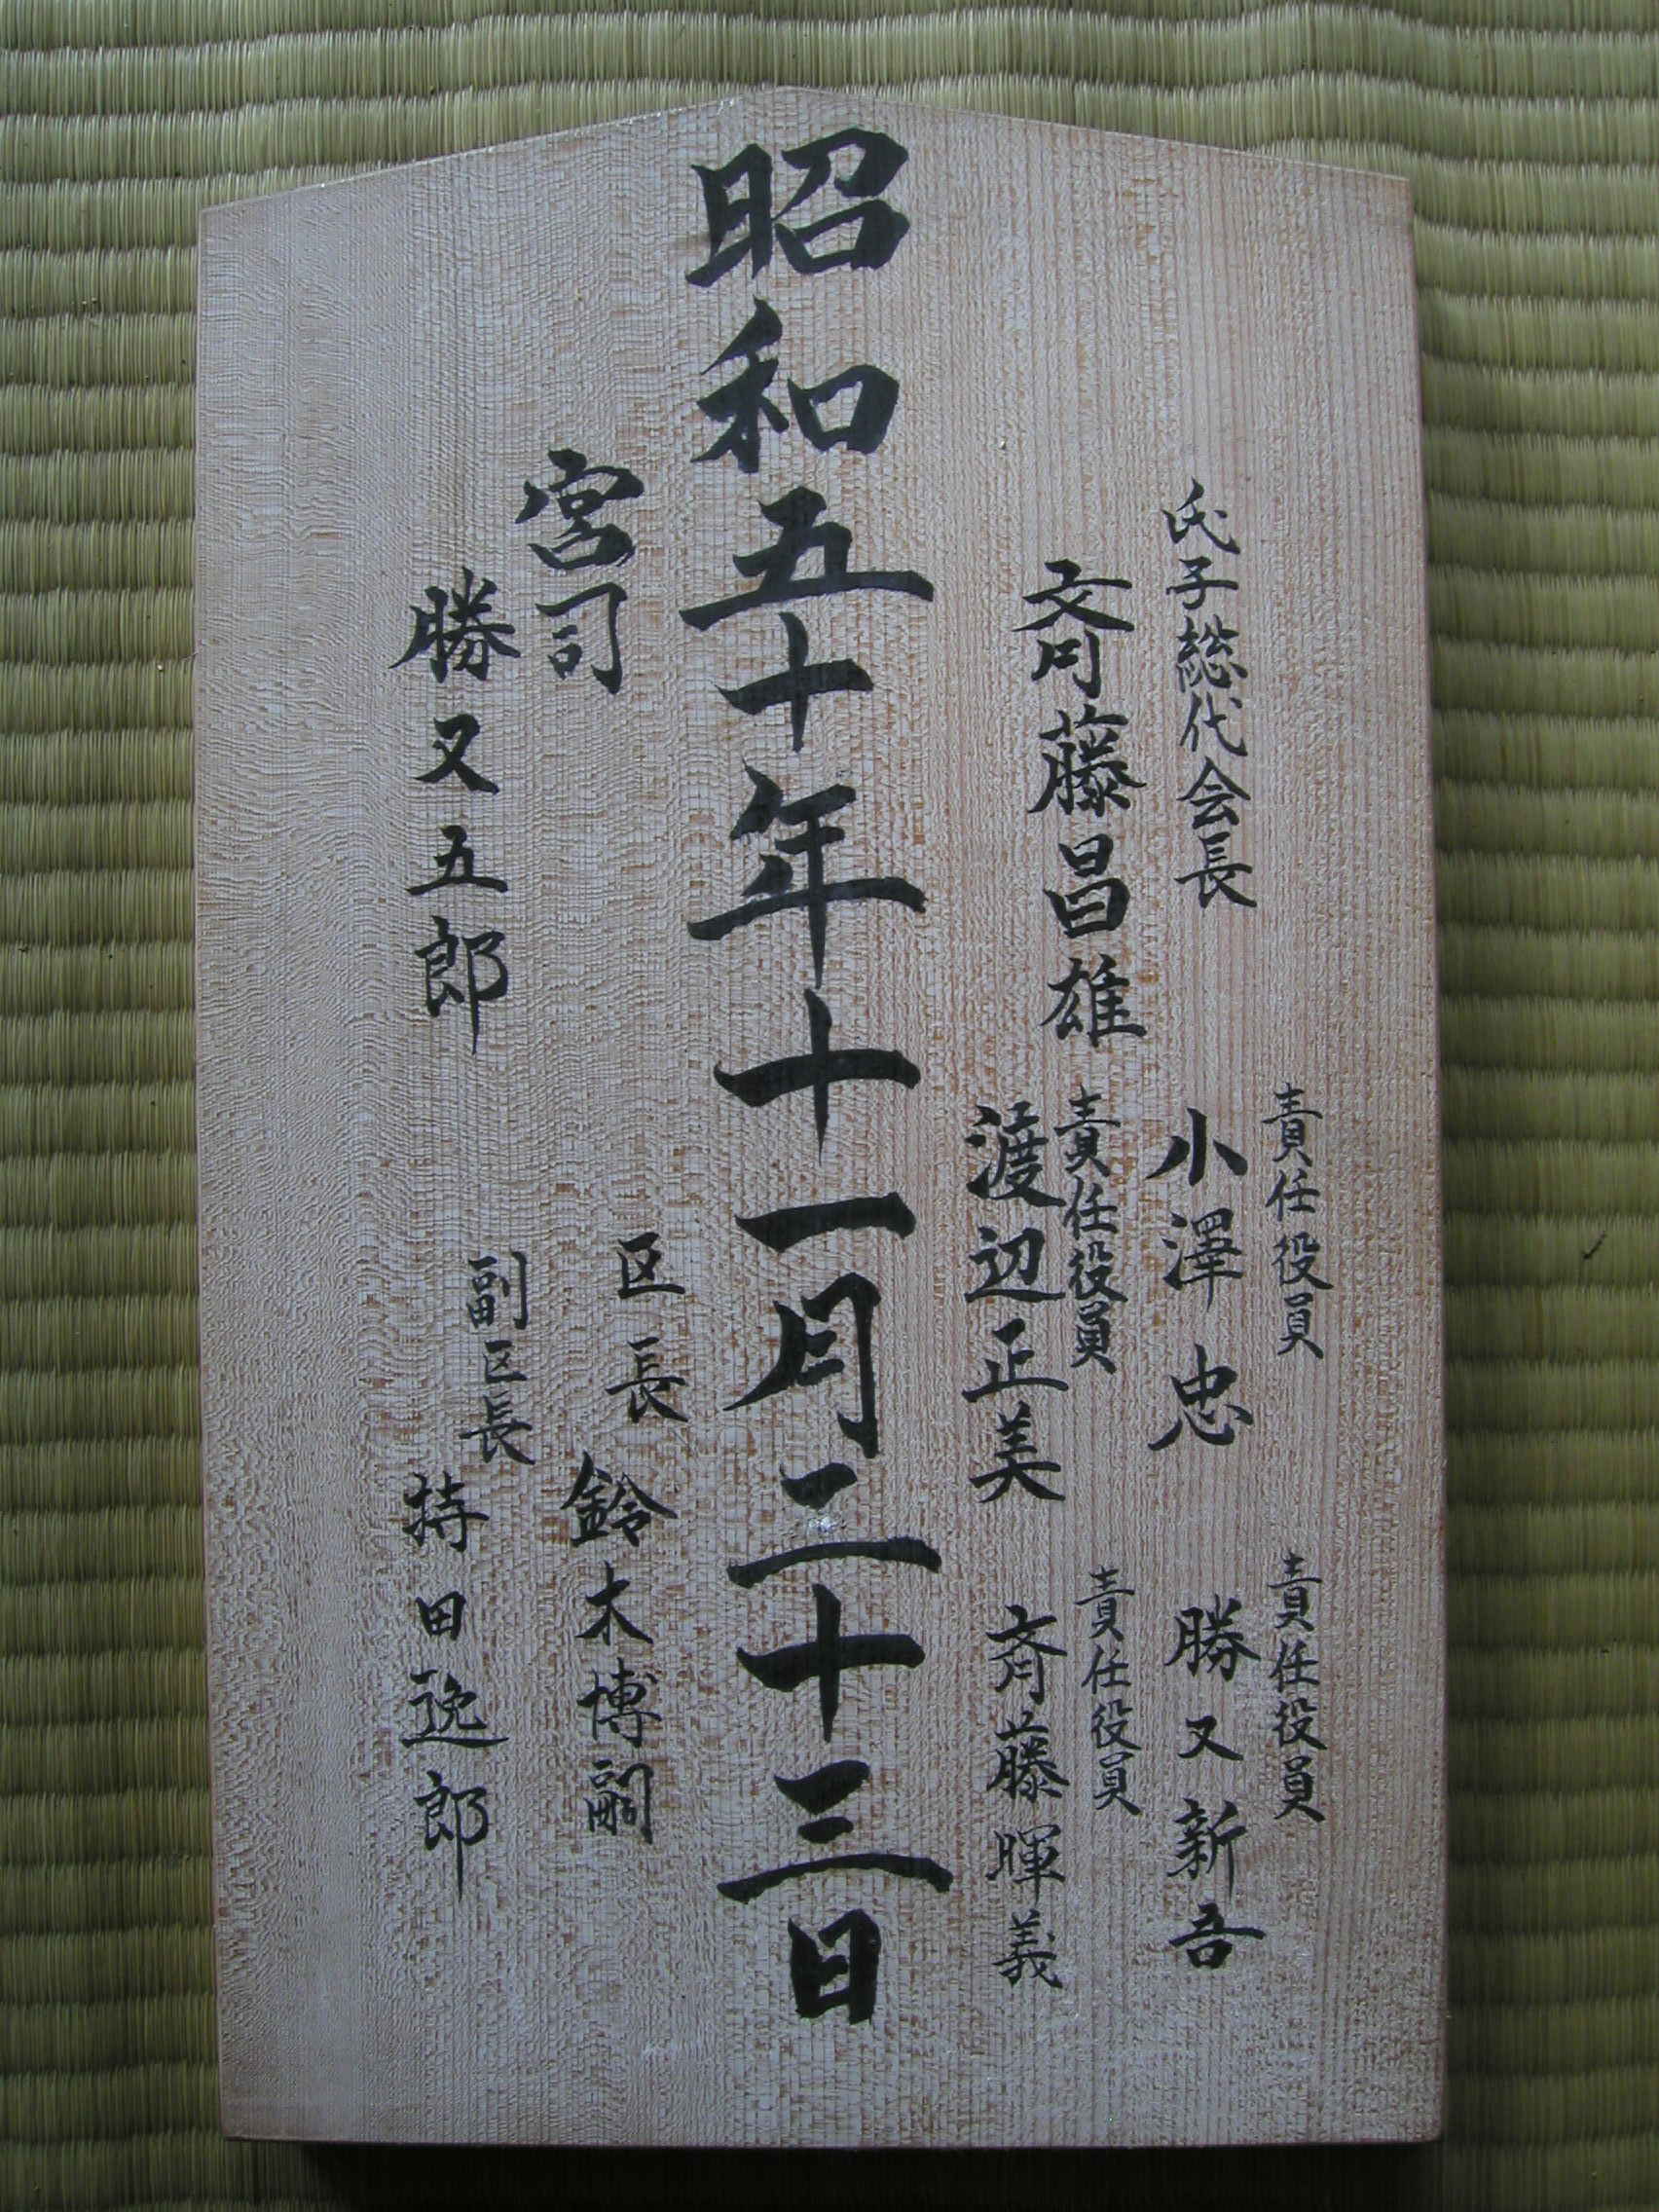 氏子総代会長
斉藤昌雄
責任役員
小澤忠
責任役員
勝又新吾
責任役員
渡辺正美
責任役員
斉藤暉義
昭和五十年十一月二十三日
宮司
勝又五郎
区長
鈴木博嗣
副区長
持田逸郎